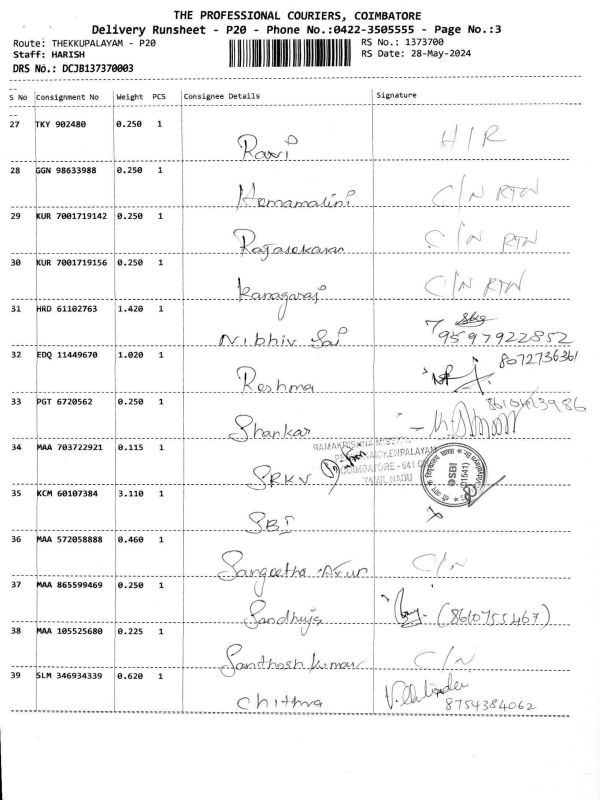 THE PROFESSIONAL COURIERS, COIMBATORE
Delivery Runsheet - P20 - Phone No.:0422-3505555 - Page No.:3
Route: THEKKUPALAYAM - P20 RS No.: 1373700
Staff: HARISH RS Date: 28-May-2024
DRS No.: DCJB137370003
S No Consignment No Weight PCS Consignee Details Signature
27 TKY 902480 0.250 1
Ravi H/R
28 GGN 98633988 0.250 1
Hemamalini C/N RTN
29 KUR 7001719142 0.250 1
Rajasekaran C/N RTN
30 KUR 7001719156 0.250 1
Kanagaraj C/N RTN
31 HRD 61102763 1.420 1
Nibhiv Sai 9597922852
32 EDQ 11449670 1.020 1 8072736361
Reshma
33 PGT 6720562 0.250 1
Shankar
34 MAA 703722921 0.115 1
RAMAKRISHNA
COIMBATORE - 641
TAMIL NADU
SRKV
SBI
35 KCM 60107384 3.110 1
SBI
36 MAA 572058888 0.460 1
Sangeetha Arun C/N
37 MAA 865599469 0.250 1
Sandhiya (8610755467)
38 MAA 105525680 0.225 1
Santhosh Kumar C/N
39 SLM 346934339 0.620 1
Chithra 8754384062